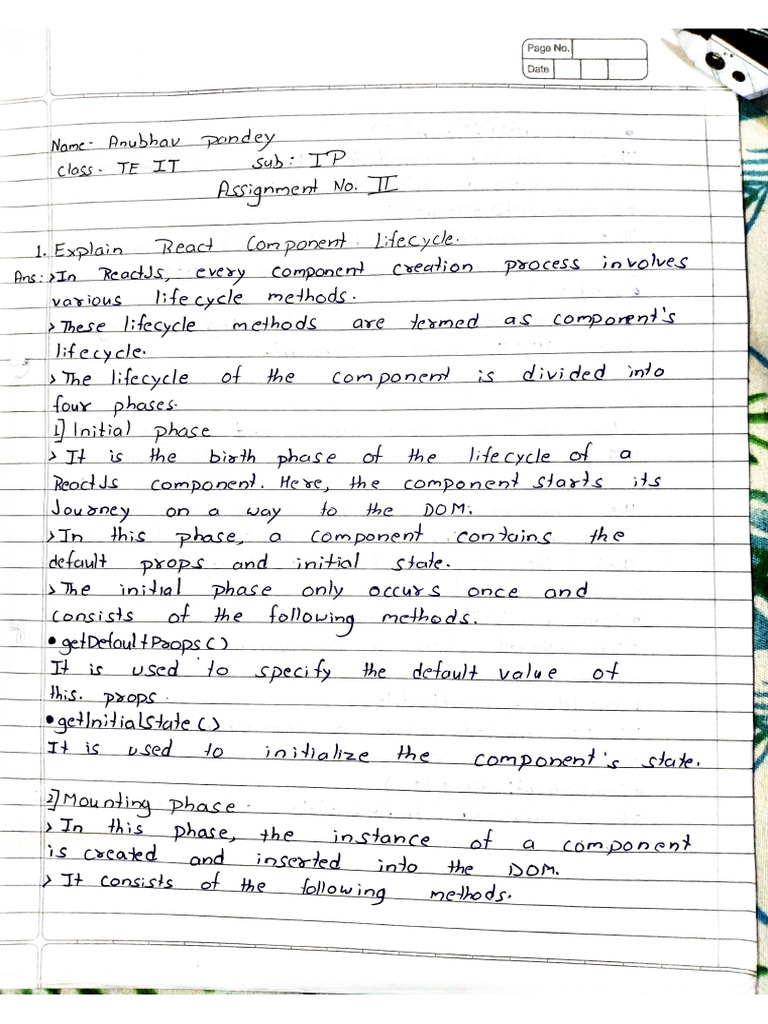 Page No.
Date
Name- Anubhav pandey
Class- TE IT Sub: IP
Assignment No. II
1. Explain React Component Lifecycle.
Ans: > In ReactJs, every component creation process involves
various lifecycle methods.
> These lifecycle methods are termed as component's
lifecycle.
> The lifecycle of the component is divided into
four phases.
1] Initial phase
> It is the birth phase of the lifecycle of a
ReactJs component. Here, the component starts its
Journey on a way to the DOM.
> In this phase, a component contains the
default props and initial state.
> The initial phase only occurs once and
consists of the following methods.
• getDefaultProps()
It is used to specify the default value of
this. props.
• getInitialState()
It is used to initialize the component's state.
2] Mounting phase.
> In this phase, the instance of a component
is created and inserted into the DOM.
> It consists of the following methods.